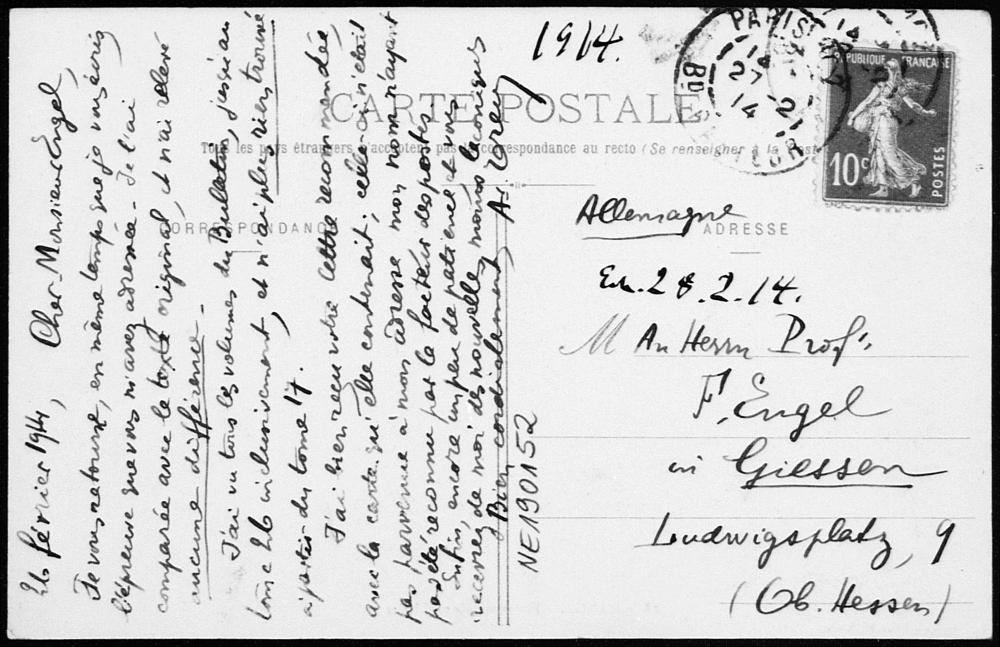 26 février 1914,
Cher Monsieur Engel,
Je vous retourne, en même temps que je vous écris
l'épreuve que vous m'avez adressée. Je l'ai
comparée avec le texte original, et n'ai relevé
aucune différence.
J'ai vu tous les volumes du Bulletin, jusqu'au
tome 26 inclusivement, et n'ai plus rien trouvé
à partir du tome 17.
J'ai bien reçu votre lettre recommandée,
avec la carte qu'elle contenait; celle-ci n'était
pas parvenue à mon adresse mon nom n'ayant
pas été reconnu par le facteur des postes.
Enfin, encore un peu de patience et vous
recevrez de moi des nouvelles moins laconiques
Bien cordialement,
1914.
CARTE POSTALE
Tous les pays étrangers n'acceptent pas la correspondance au recto (Se renseigner à la Poste)
CORRESPONDANCE
ADRESSE
PARIS
BD
14
27
14
2
RÉPUBLIQUE FRANÇAISE
10c
POSTES
Allemagne
28.2.14.
M An Herrn Prof.
F. Engel
in Giessen
Ludwigsplatz, 9
(Ob. Hessen)
NE190152